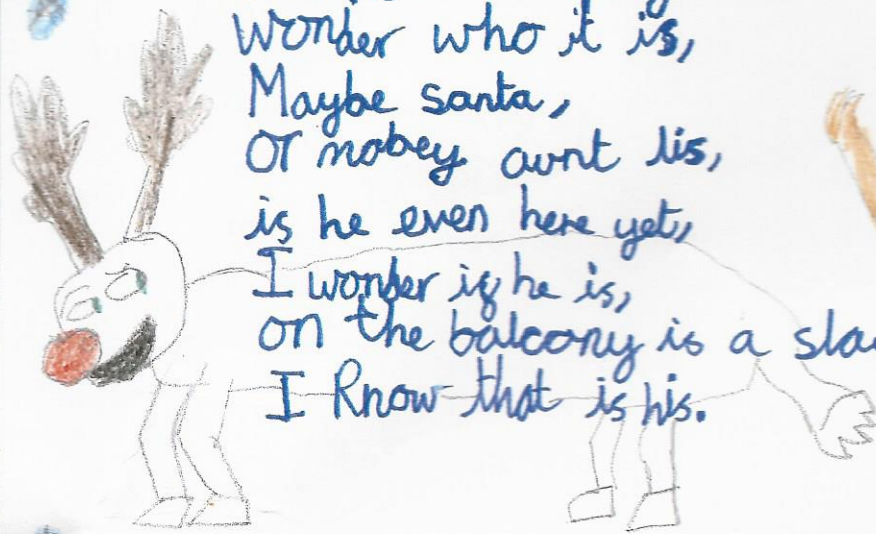 wonder who it is,
Maybe santa,
Or mabey aunt lis,
is he even here yet,
I wonder if he is,
on the balcony is a
I know that is his.